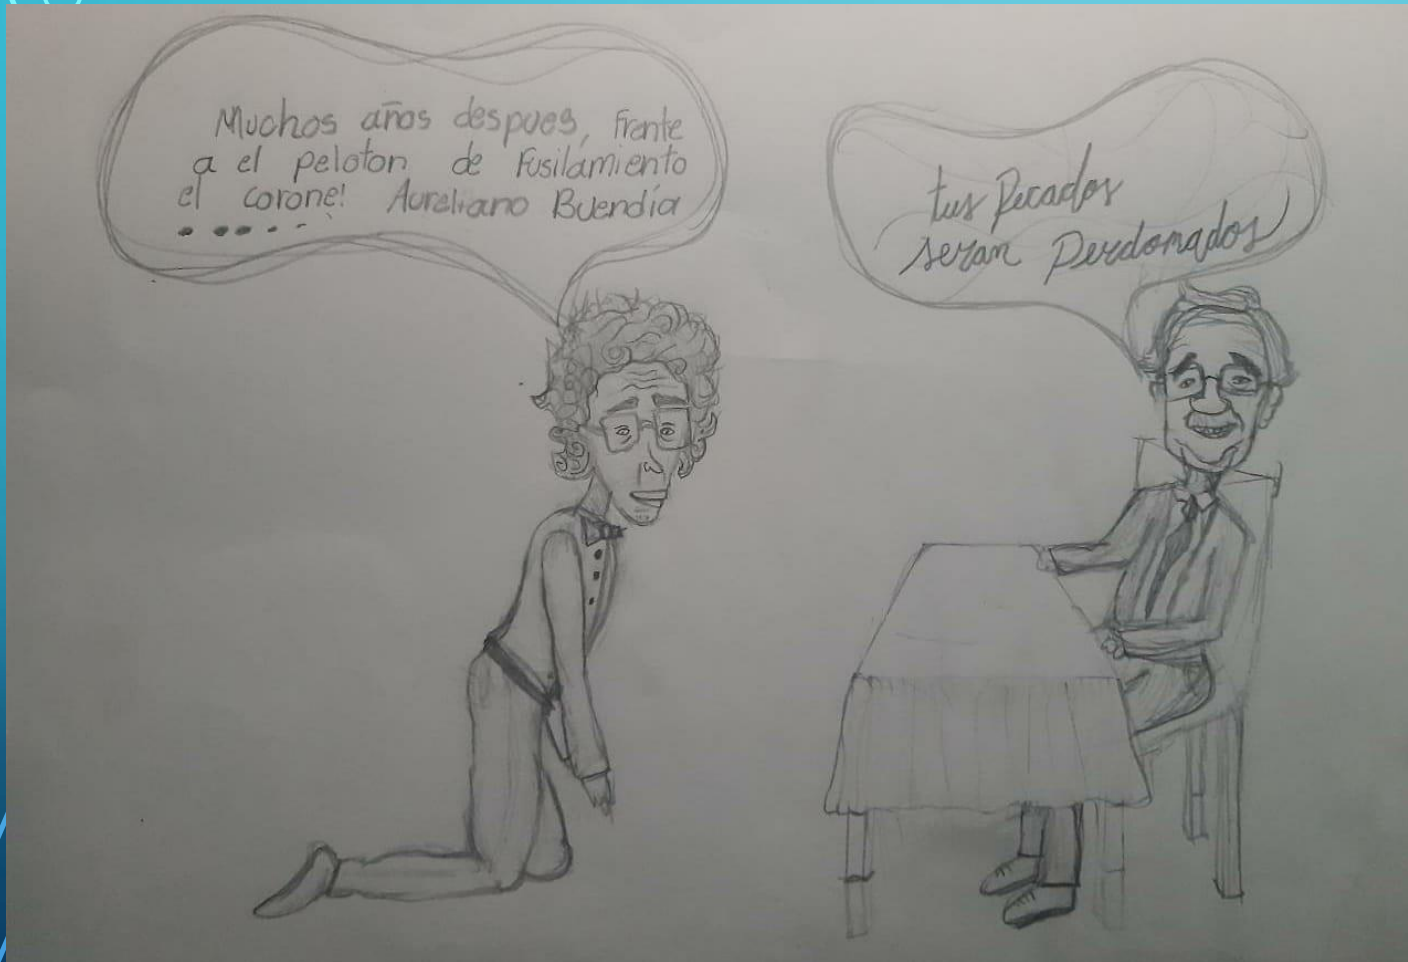 Muchos años despues, frente
a el peloton de Fusilamiento
el coronel Aureliano Buendía
......
tus Pecados
seran Perdonados